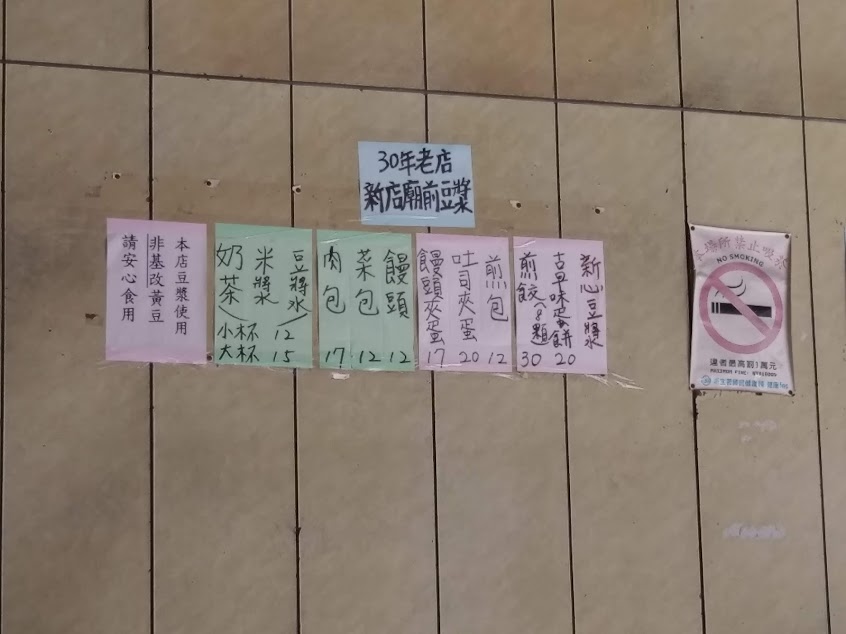 30年老店
新店廟前豆漿
新心豆漿
古早味蛋餅 20
煎餃(8顆) 30
煎包 12
吐司夾蛋 20
饅頭夾蛋 17
饅頭 12
菜包 12
肉包 17
豆漿
米漿
奶茶
小杯 12
大杯 15
本店豆漿使用
非基改黃豆
請安心食用
所禁止吸菸
NO SMOKING
違者最高罰1萬元
MAXIMUM FINE: